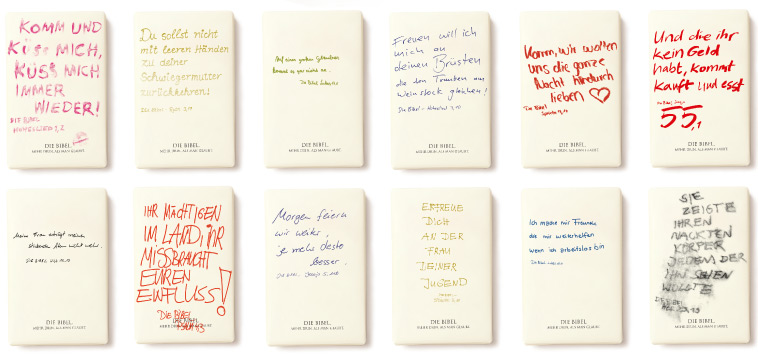 KOMM UND
KÜSS MICH,
KÜSS MICH
IMMER
WIEDER!
DIE BIBEL
HOHESLIED 1,2
DIE BIBEL.
MEHR DRIN, ALS MAN GLAUBT.
Du sollst nicht
mit leeren Händen
zu deiner
Schwiegermutter
zurückkehren!
Die Bibel
DIE BIBEL.
MEHR DRIN, ALS MAN GLAUBT.
Auf einen
kommt es gar nicht an
Die Bibel
DIE BIBEL.
MEHR DRIN, ALS MAN GLAUBT.
Freuen will ich
mich an
deinen Brüsten
die den Trauben am
Weinstock gleichen!
Die Bibel -
DIE BIBEL.
MEHR DRIN, ALS MAN GLAUBT.
Komm, wir wollen
uns die ganze
Nacht hindurch
lieben
Die Bibel
DIE BIBEL.
MEHR DRIN, ALS MAN GLAUBT.
Und die ihr
kein Geld
habt, kommt
kauft und esst
Die Bibel
55,1
DIE BIBEL.
MEHR DRIN, ALS MAN GLAUBT.
Meine Frau erträgt meinen
Atem nicht mehr.
Die Bibel
DIE BIBEL.
MEHR DRIN, ALS MAN GLAUBT.
IHR MÄCHTIGEN
IM LAND, IHR
MISSBRAUCHT
EUREN
EINFLUSS!
DIE BIBEL
DIE BIBEL.
MEHR DRIN, ALS MAN GLAUBT.
Morgen feiern
wir weiter,
je mehr desto
besser.
Die Bibel
DIE BIBEL.
MEHR DRIN, ALS MAN GLAUBT.
ERFREUE
DICH
AN DER
FRAU
DEINER
JUGEND
DIE BIBEL.
MEHR DRIN, ALS MAN GLAUBT.
Ich mache mir Freunde
die mir weiterhelfen
wenn ich arbeitslos bin
Die Bibel
DIE BIBEL.
MEHR DRIN, ALS MAN GLAUBT.
SIE
ZEIGTE
IHREN
NACKTEN
KÖRPER
JEDEM DER
IHN SEHEN
WOLLTE
DIE BIBEL
DIE BIBEL.
MEHR DRIN, ALS MAN GLAUBT.